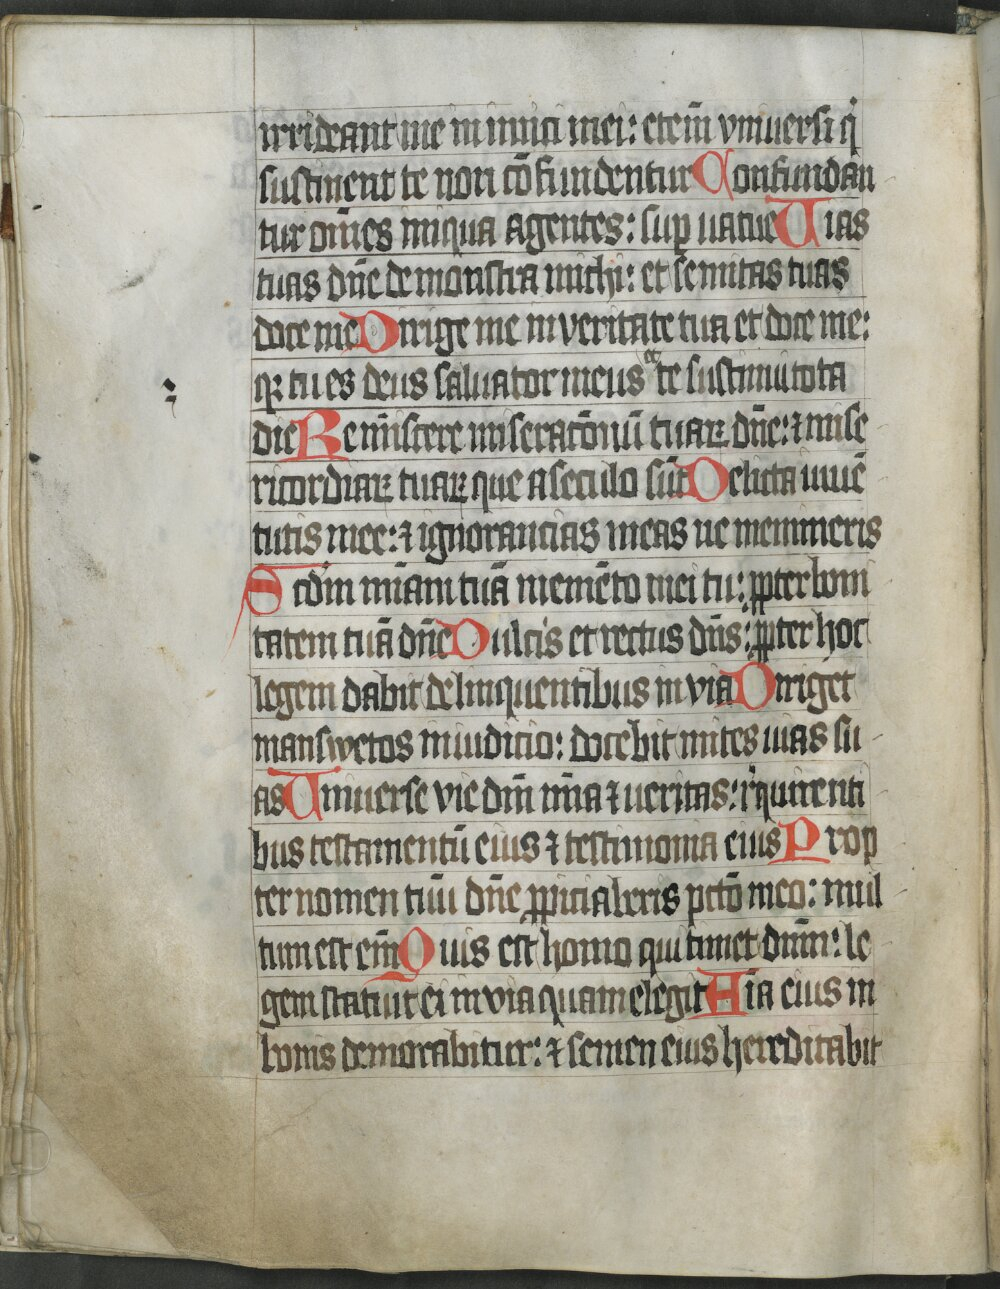 irrideant me inimici mei: eteni̅ vniuersi q̇
sustinent te non co̅fundentur Confundan
tur om̅es iniqua agentes: sup̱ uacue Uias
tuas dn̅e demonstra michi: et semitas tuas
doce me Dirige me in veritate tua et doce me:
qꝛ tu es deus saluator meus et te sustinui tota
die Remi̅scere miserac̅onu̅ tuaꝝ dn̅e: ⁊ mise
ricordiaꝝ tuaꝝ que a seculo su̅t Delicta iuue̅
tutis mee: ⁊ ignorancias meas ne memineris
Scd̅m mi̅am tua̅ meme̅to mei tu: ꝓpter boni
tatem tua̅ dn̅e Dulcis et rectus dn̅s: ꝓpter hoc
legem dabit delinquentibus in via Diriget
manswetos in iudicio: docebit mites uias su
as Uniuerse vie dn̅i mi̅a ⁊ ueritas: r̓quirenti
bus testamentu̅ eius ⁊ testimonia eius Prop
ter nomen tuu̅ dn̅e ꝓpiciaberis pcc̅o meo: mul
tum est em̅ Quis est homo qui timet dnm̅: le
gem statuit ei in via quam elegit Ai̅a eius in
bonis demorabitur: ⁊ semen eius hereditabit